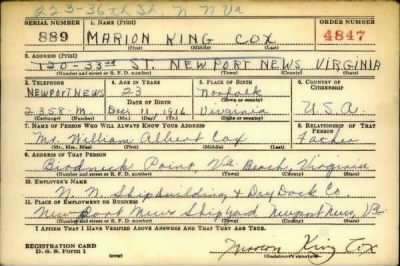 223-36th St. N N Va
SERIAL NUMBER 1. NAME (Print) ORDER NUMBER
889 MARION KING COX 4847
(First) (Middle) (Last)
2. ADDRESS (Print)
120-33rd ST. NEWPORT NEWS VIRGINIA
(Number and street or R. F. D. number) (Town) (County) (State)
3. TELEPHONE 4. AGE IN YEARS 5. PLACE OF BIRTH 6. COUNTRY OF CITIZENSHIP
NEWPORT NEWS 23 Norfolk
DATE OF BIRTH (Town or county)
2358-M Dec. 11, 1916 Virginia U.S.A.
(Exchange) (Number) (Mo.) (Day) (Yr.) (State or country)
7. NAME OF PERSON WHO WILL ALWAYS KNOW YOUR ADDRESS 8. RELATIONSHIP OF THAT PERSON
Mr. William Albert Cox Father
(Mr., Mrs., Miss) (First) (Middle) (Last)
9. ADDRESS OF THAT PERSON
Birdneck Point, Va Beach, Virginia
(Number and street or R. F. D. number) (Town) (County) (State)
10. EMPLOYER'S NAME
N. N. Shipbuilding + Dry Dock Co
11. PLACE OF EMPLOYMENT OR BUSINESS
Newport News Shipyard Newport News, Va
(Number and street or R. F. D. number) (Town) (County) (State)
I AFFIRM THAT I HAVE VERIFIED ABOVE ANSWERS AND THAT THEY ARE TRUE.
REGISTRATION CARD
D. S. S. Form 1
Marion King Cox
(Registrant's signature)